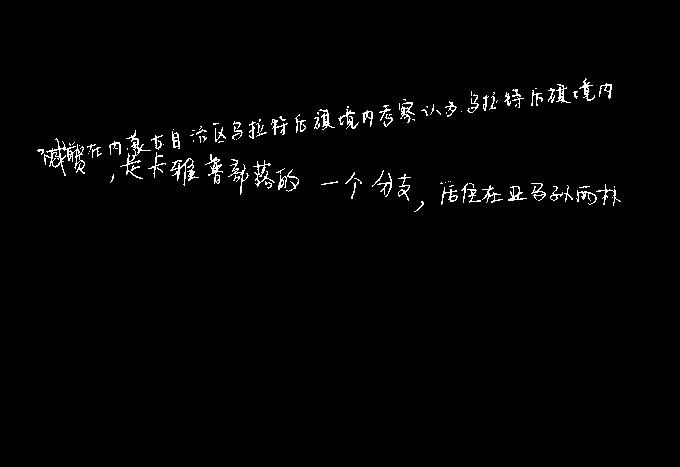 在内蒙古自治区乌拉特后旗境内考察认为乌拉特后旗境内
,是卡雅鲁部落的一个分支,居住在亚马孙两林